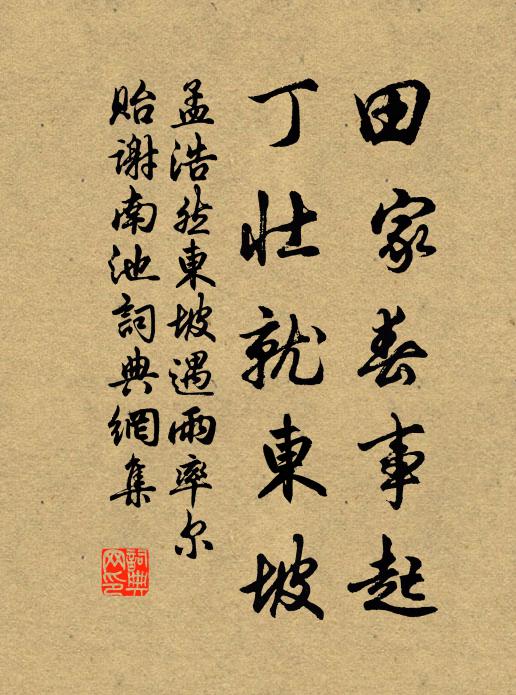 田家春事起
丁壯就東坡
孟浩然東坡遇雨率尔
貽謝南池詞典網集
詞典網印